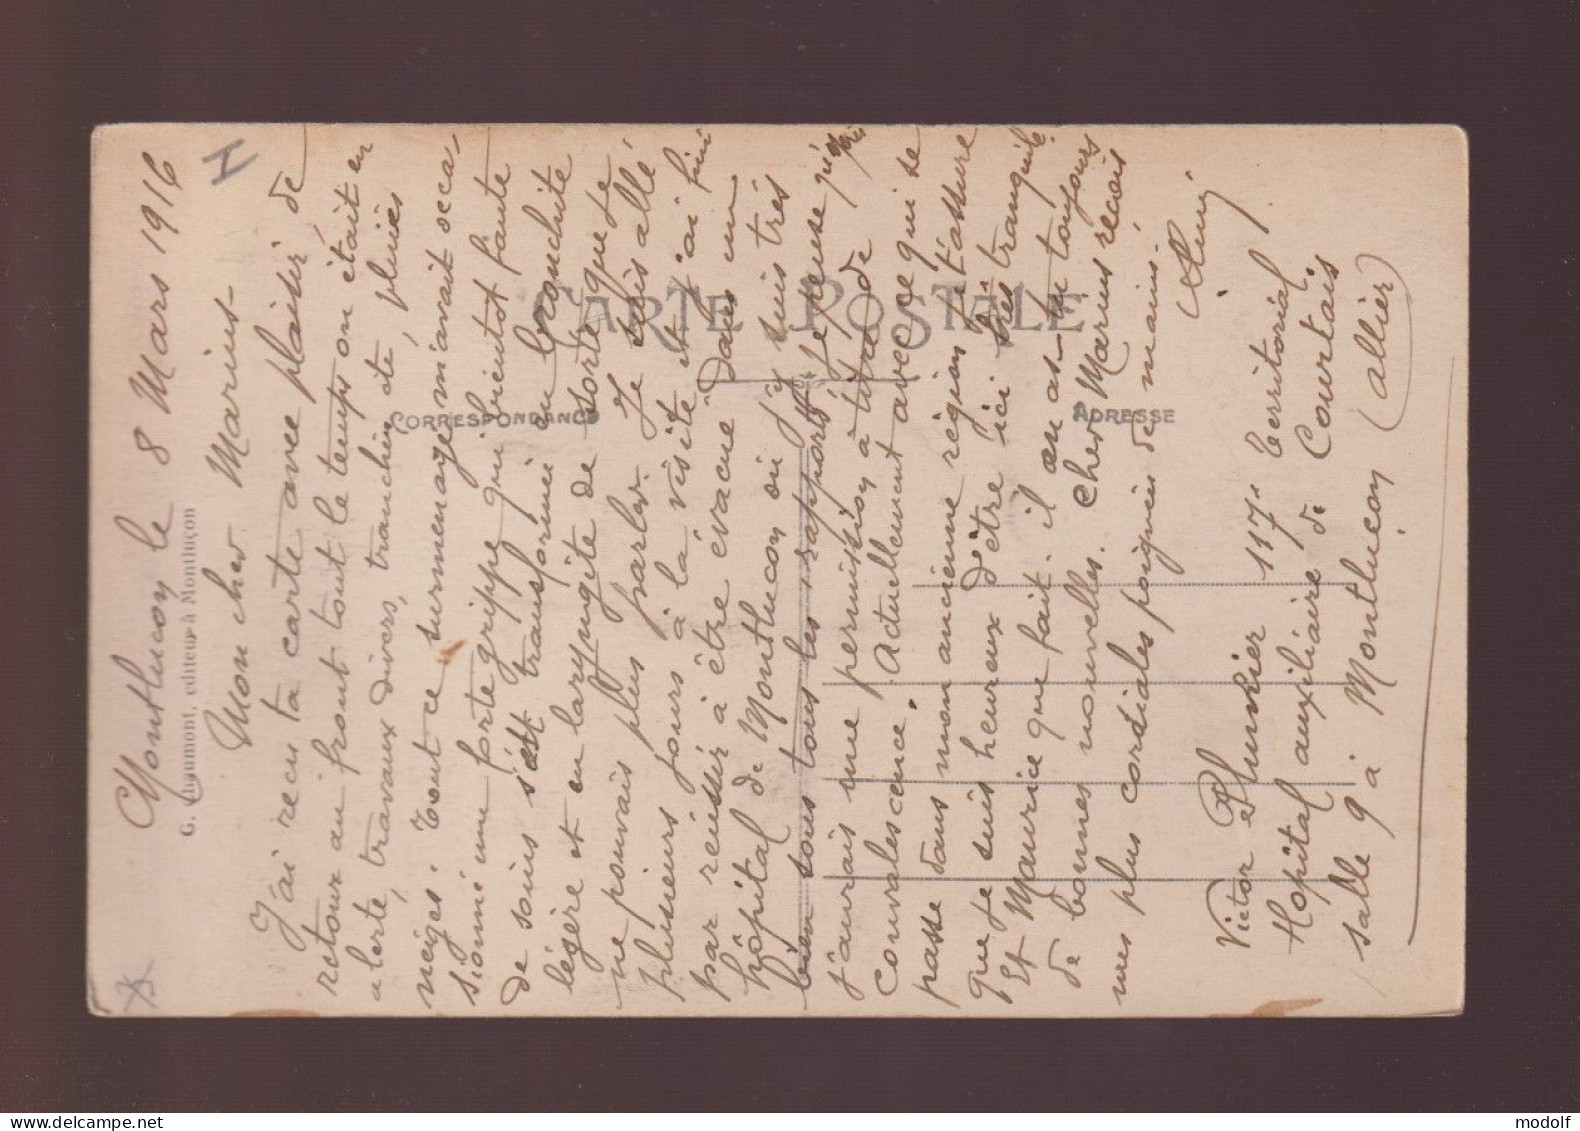 Montluçon le 8 Mars 1916
Mon cher Marius
J'ai reçu ta carte avec plaisir, de
retour au front tout le temps on était en
alerte, travaux divers, tranchée etc, pluies
neiges. Tout ce surmenage m'avait occa-
sionné une forte grippe qui bientôt faute
de soins s'est transformée en bronchite
légère et en laryngite de sorte que je
ne pouvais plus parler. Je suis allé
plusieurs jours à la visite et j'ai fini
par réussir à être évacué dans un
hôpital de Montluçon où j'y suis très
bien sous tous les rapports. Je pense qu'après
j'aurais une permission à titre de
convalescence. Actuellement avec ce qui se
passe dans mon ancienne région je t'assure
que je suis heureux d'être ici très tranquile.
Et Maurice que fait-il en as-tu toujours
de bonnes nouvelles. Cher Marius reçois
mes plus cordiales poignées de mains.
Victor Plunkier 117e Territorial
Hôpital auxiliaire de Courtais
salle 9 à Montluçon (Allier)
G. Chaumont, éditeur à Montluçon
CARTE POSTALE
CORRESPONDANCE
ADRESSE
www.delcampe.net
modolf